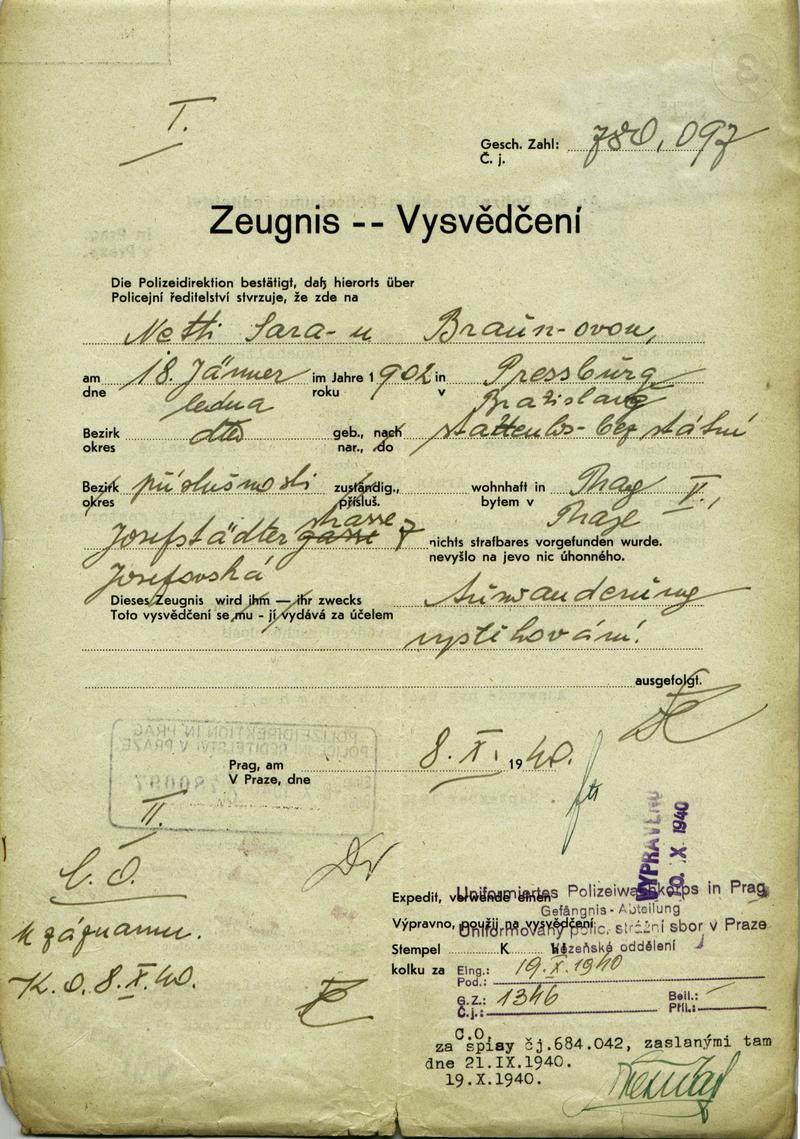 I.
Gesch. Zahl: 780,097
Č. j.
Zeugnis -- Vysvědčení
Die Polizeidirektion bestätigt, daß hierorts über
Policejní ředitelství stvrzuje, že zde na
Netti Sara-u Braun-ovou,
am 18. Jänner im Jahre 1902 in Pressburg
dne ledna roku v Bratislavě
Bezirk dtto geb., nach staatenlos - bez státní
okres nar., do
Bezirk příslušnosti zuständig., wohnhaft in Prag V.,
okres přísluš. bytem v Praze
Josefstädter gasse strasse 7 nichts strafbares vorgefunden wurde.
nevyšlo na jevo nic úhonného.
Josefovská
Dieses Zeugnis wird ihm — ihr zwecks Auswanderung
Toto vysvědčení se mu - jí vydává za účelem
vystěhování.
ausgefolgt.
Prag, am 8. X. 1940.
V Praze, dne
II.
C. O.
k záznamu.
K. O. 8. X. 40.
VYPRAVENO
10. X 1940
Expedit, verwende einen
Uniformiertes Polizeiwachkorps in Prag
Gefängnis - Abteilung
Výpravno, použij na vysvědčení
Uniformovaný polic. strážní sbor v Praze
Stempel K
Vězeňské oddělení
kolku za
Eing.: 19. X. 1940
Pod.:
G.Z.: 1346 Beil.: —
Č.j.: Příl.:
C.O.
za spisy čj.684.042, zaslanými tam
dne 21.IX.1940.
19.X.1940.